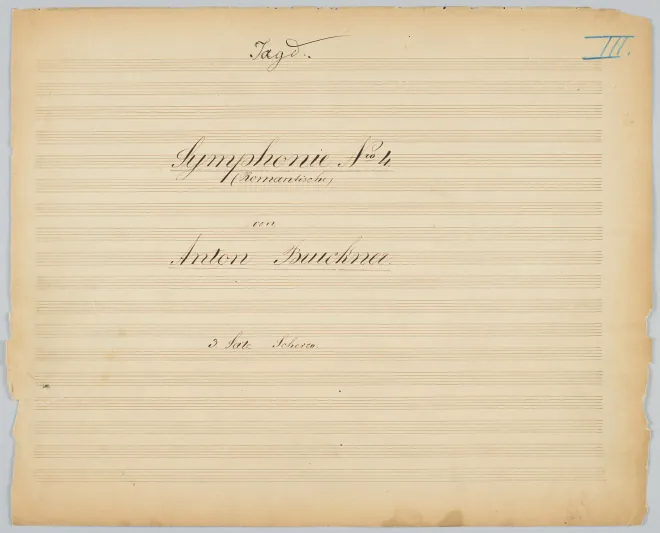 Jagd.
III.
Symphonie Nro 4
(Romantische)
von
Anton Bruckner
3. Satz Scherzo.